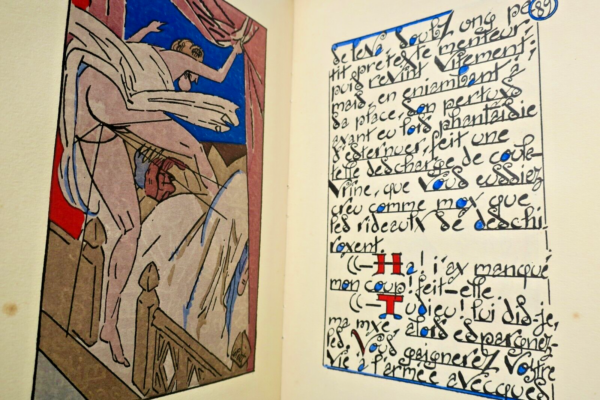 se leva, soubz ung pe
tit pretexte menteur;
puis revint vitement;
mais, en enjambant à
sa place, son pertuys
ayant eu lors phantaisie
d'esternuer, feit une
telle descharge de coule-
vrine, que vous eussiez
creu comme moy que
les rideaulx se deschi
royent.
((—Ha! j'ay manqué
mon coup! feit-elle.
((—Tudieu! lui dis-je,
ma mye, alors espargnez-
les! Vous gaignerez vostre
vie à l'armée avecques